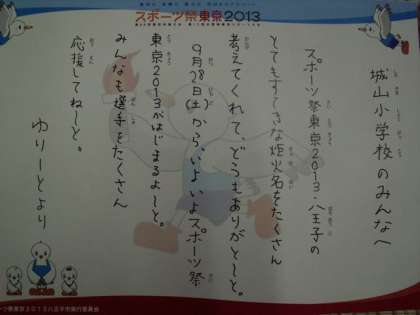 スポーツ祭東京2013
城山小学校のみんなへ
スポーツ祭東京2013・八王子の
とてもすてきな炬火名をたくさん
考えてくれて、どうもありがとーと。
9月28日(土)から、いよいよスポーツ祭
東京2013がはじまるよーと。
みんなも選手をたくさん
応援してねーと。
ゆりーとより
スポーツ祭東京2013八王子市実行委員会